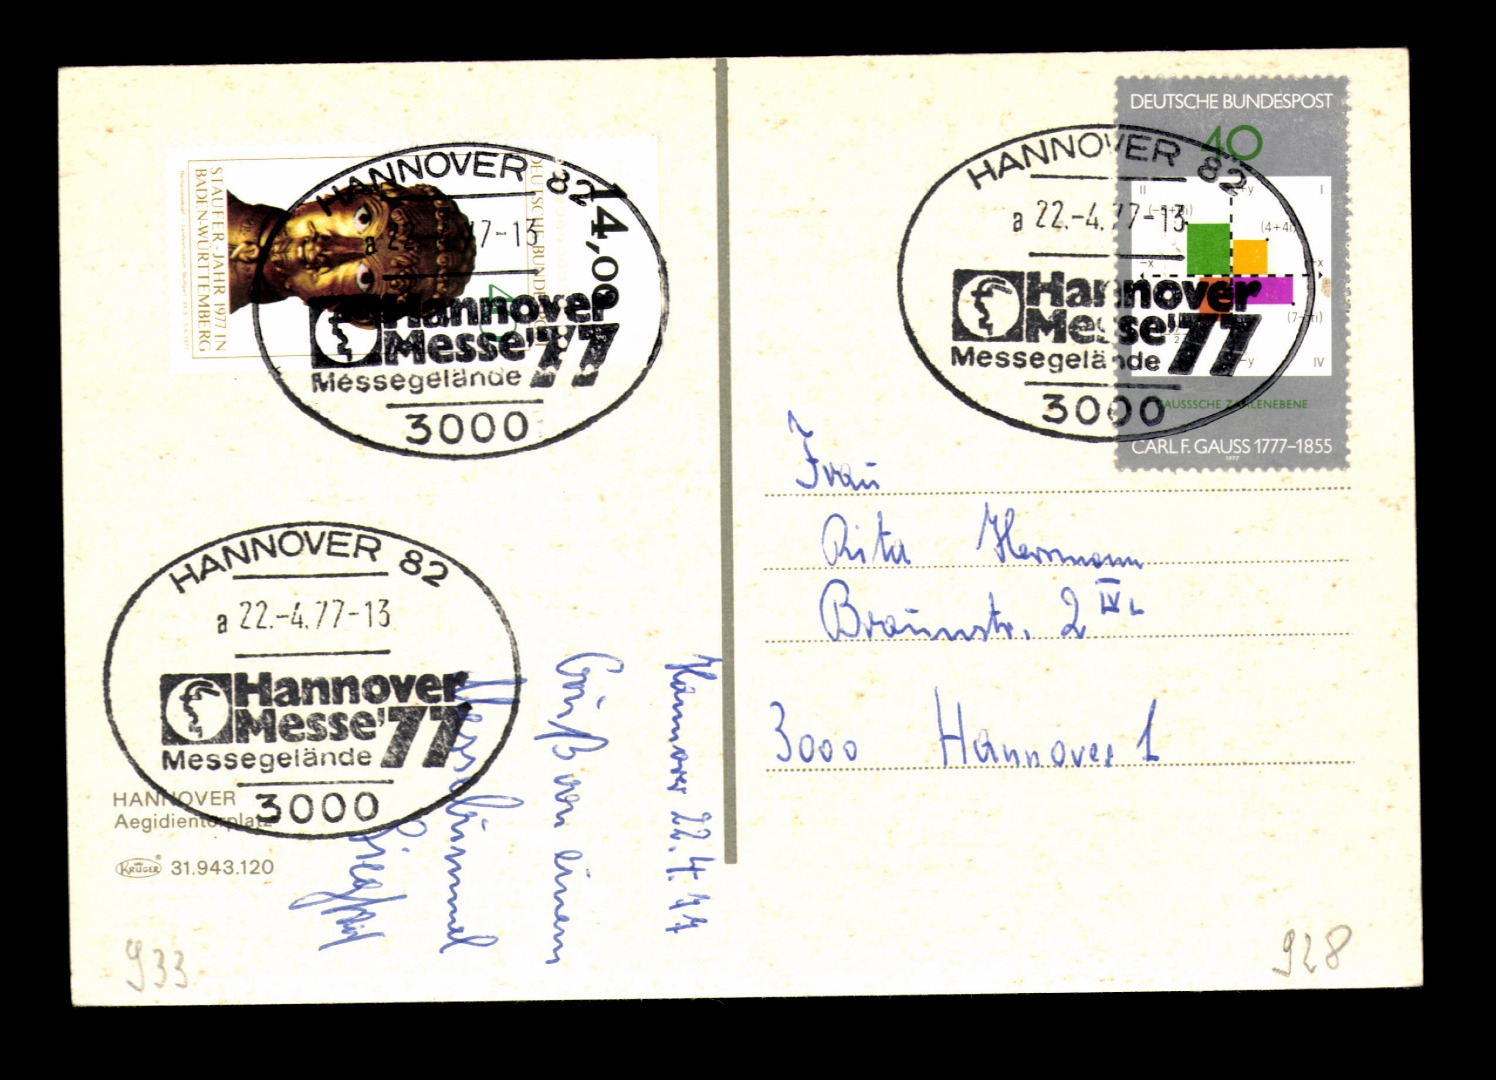 STAUFER-JAHR 1977 IN
BADEN-WÜRTTEMBERG
HANNOVER 82
a 22.-4.77-13
Hannover
Messe'77
Messegelände
3000
4,00
HANNOVER 82
a 22.-4.77-13
Hannover
Messe'77
Messegelände
3000
HANNOVER
Aegidientorplatz
KRÜGER 31.943.120
Hannover 22.4.77
Gruß von einem
Siegfried
933
DEUTSCHE BUNDESPOST
40
II
I
IV
GAUSSSCHE ZAHLENEBENE
CARL F. GAUSS 1777–1855
1977
HANNOVER 82
a 22.-4.77-13
Hannover
Messe'77
Messegelände
3000
Frau
Rita Herrmann
Braunstr. 2 IV L
3000 Hannover 1
928